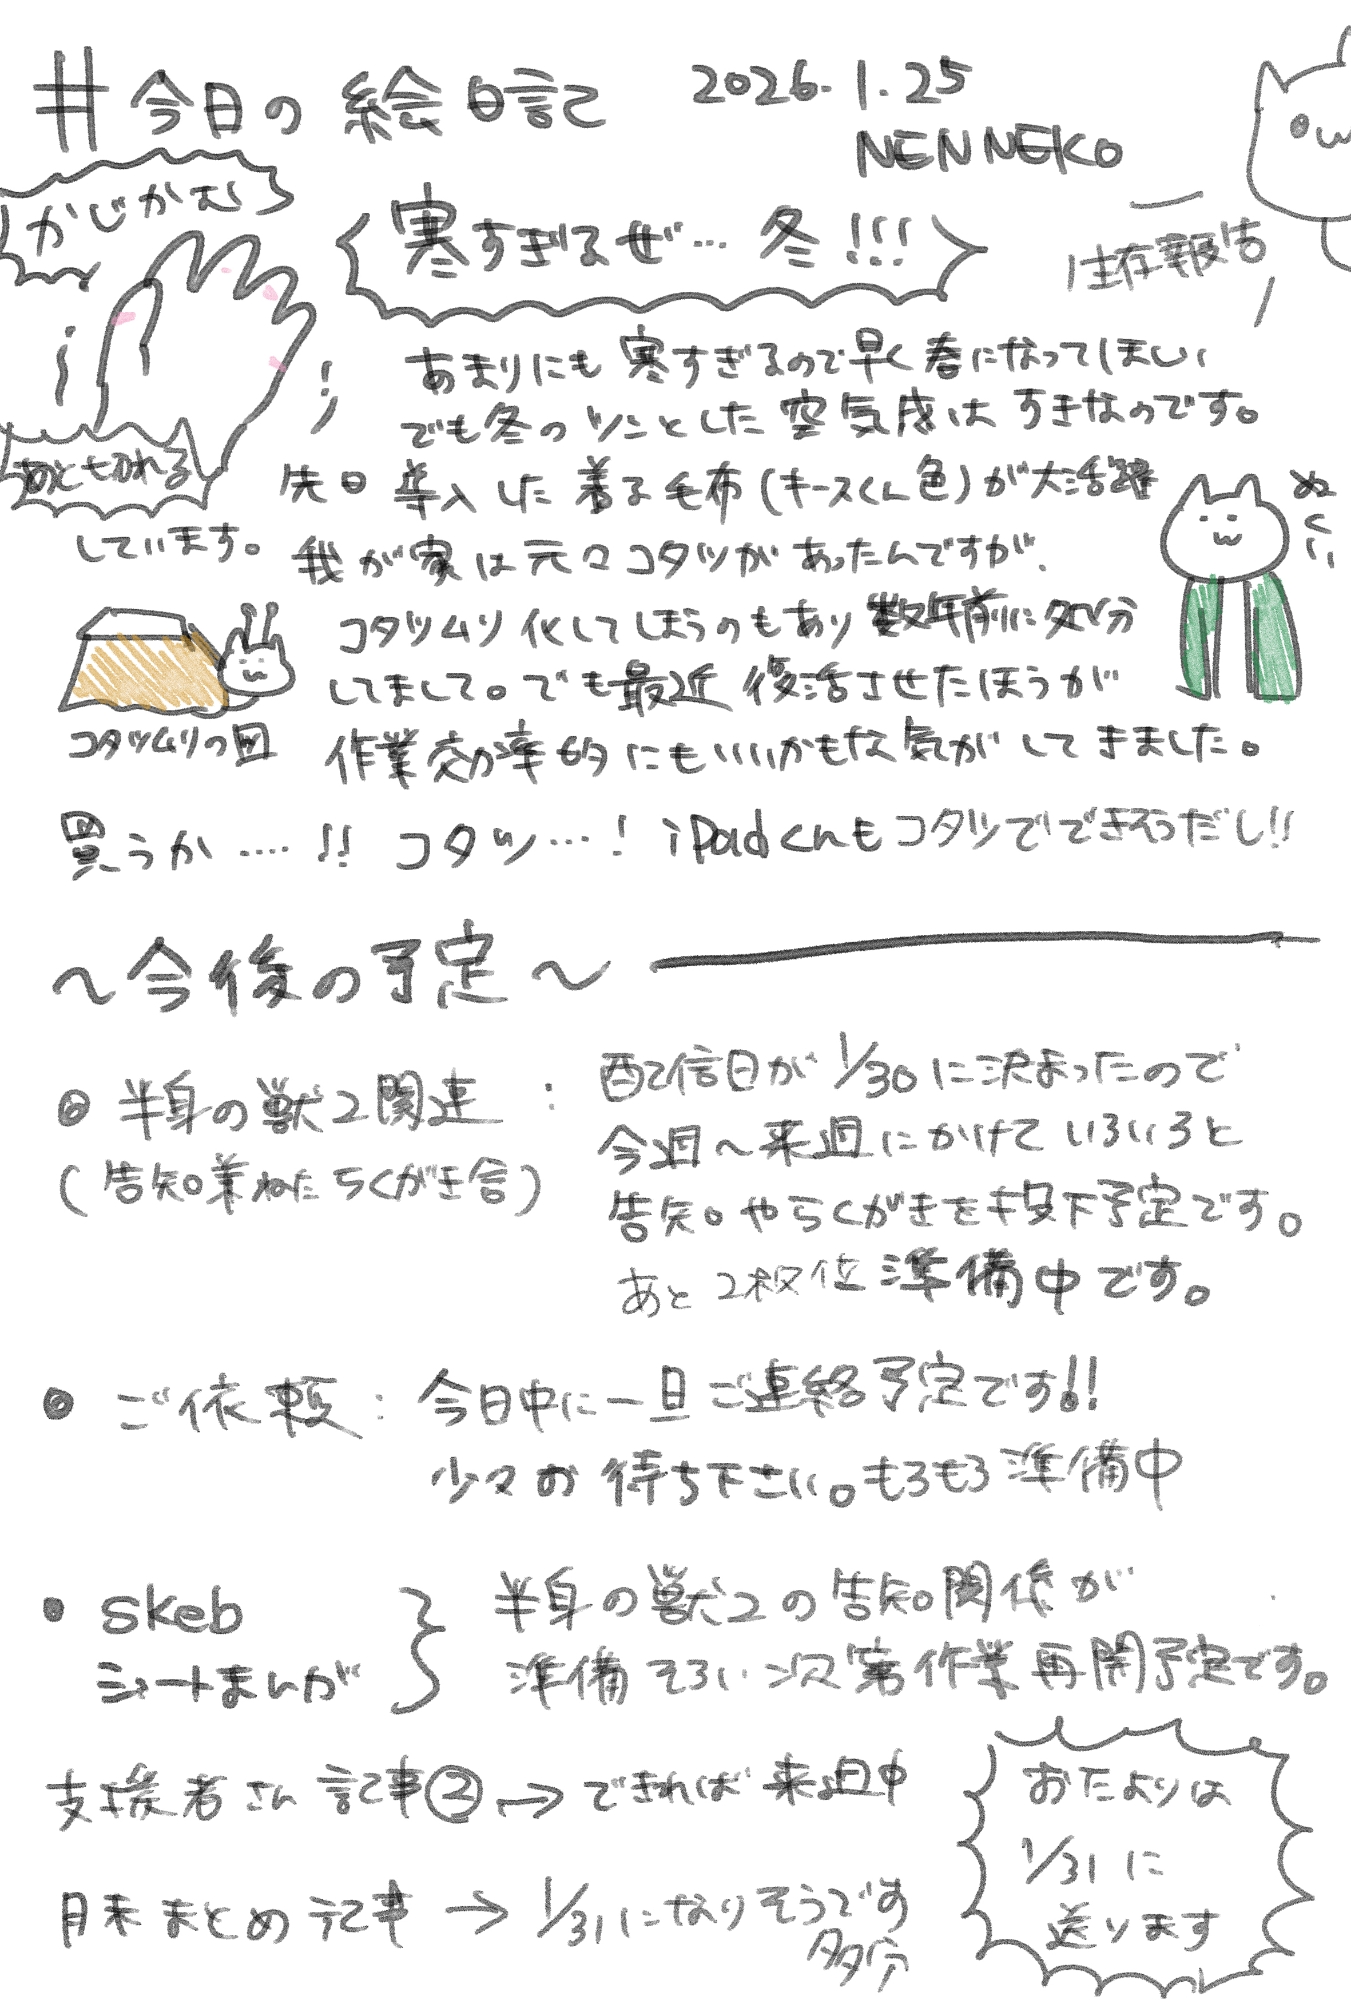 #今日の絵日記 2026.1.25
NENNEKO
かじかむ
寒すぎるぜ… 冬!!!
生存報告
あまりにも寒すぎるので早く春になってほしい
でも冬のツンとした空気感はすきなのです。
あと切れる
先日導入した着る毛布(キースくん色)が大活躍
しています。我が家は元々コタツがあったんですが、
ぬくい
コタツムリ化してしまうのもあり数年前に処分
してまして。でも最近復活させたほうが
コタツムリの図
作業効率的にもいいかもな気がしてきました。
買うか…‥!! コタツ…! iPadくんもコタツでできそうだし!!
〜今後の予定〜
◎ 半身の獣2関連:
(告知兼ねたらくがき含)
配信日が1/30に決まったので
今週〜来週にかけていろいろと
告知やらくがきを投下予定です。
あと2枚位準備中です。
◎ ご依頼: 今日中に一旦ご連絡予定です!!
少々お待ち下さい。もろもろ準備中
● skeb
ショートまんが
半身の獣2の告知関係が
準備そろい次第作業再開予定です。
支援者さん記事②→できれば来週中
月末まとめ記事→1/31になりそうです
多分
おたよりは
1/31に
送ります